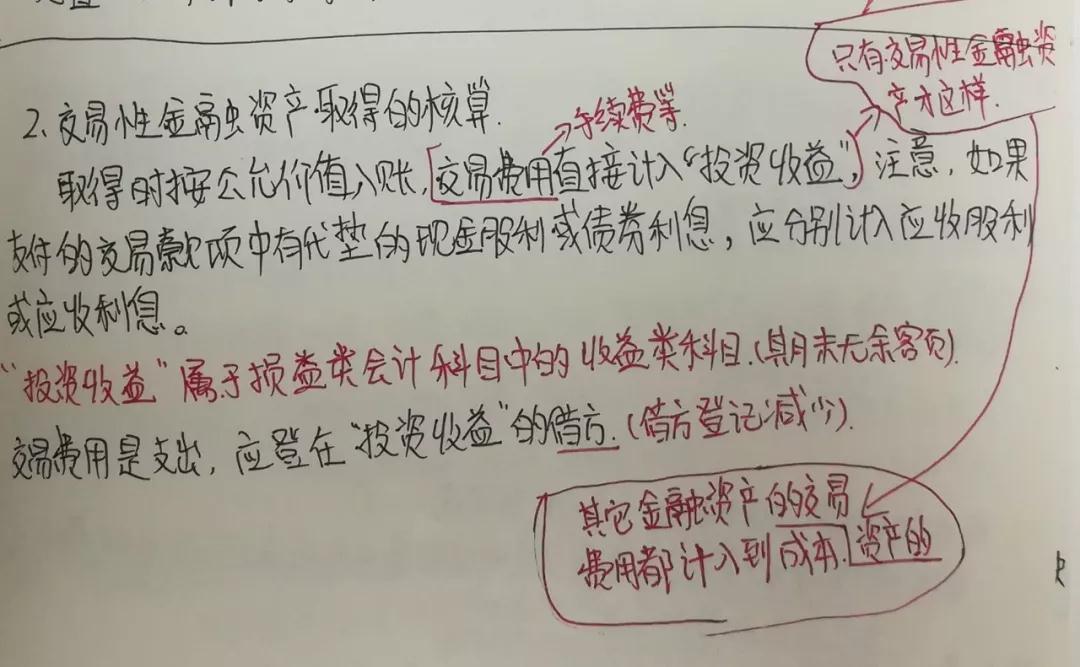 只有交易性金融资
产才这样.
2、交易性金融资产取得的核算.
手续费等.
取得时按公允价值入账,交易费用直接计入“投资收益”,注意,如果
支付的交易款项中有代垫的现金股利或债券利息,应分别计入应收股利
或应收利息。
“投资收益”属于损益类会计科目中的收益类科目.(期末无余额).
交易费用是支出,应登在“投资收益”的借方.(借方登记减少).
其它金融资产的交易
费用都计入到成本.资产的